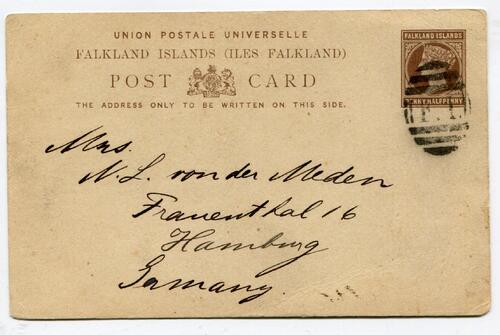 UNION POSTALE UNIVERSELLE
FALKLAND ISLANDS (ILES FALKLAND)
POST CARD
THE ADDRESS ONLY TO BE WRITTEN ON THIS SIDE.
FALKLAND ISLANDS
PENNY HALFPENNY
F.I.
Mrs.
N. L. von der Meden
Frauenthal 16
Hamburg
Germany.